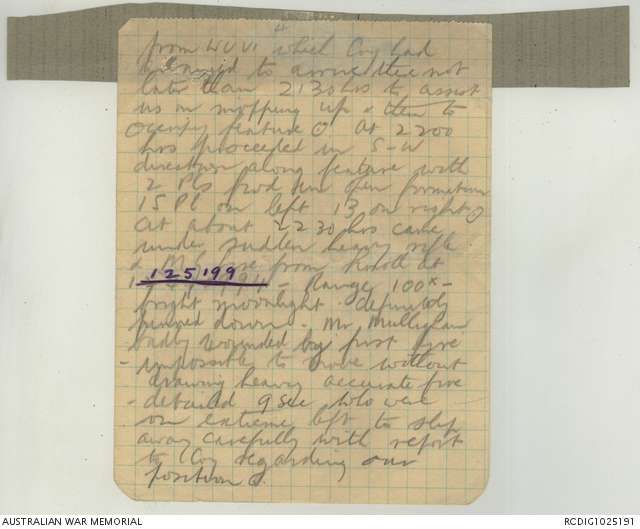 from WUVI which Coy had
arranged to arrive there not
later than 2130 hrs to assist
us in mopping up & then to
occupy feature O At 2200
hrs proceeded in S-W
direction along feature with
2 Pls fwd in open formation
15 Pl on left 13 on right
At about 2230 hrs came
under sudden heavy rifle
& M.G. fire from knoll at
125199 - Range 100x -
bright moonlight definitely
pinned down. Mr Mulligan
badly wounded by first fire
- impossible to move without
drawing heavy accurate fire
- detailed 9 Sec who were
on extreme left to slip
away carefully with report
to Coy regarding our
position
AUSTRALIAN WAR MEMORIAL
RCDIG1025191